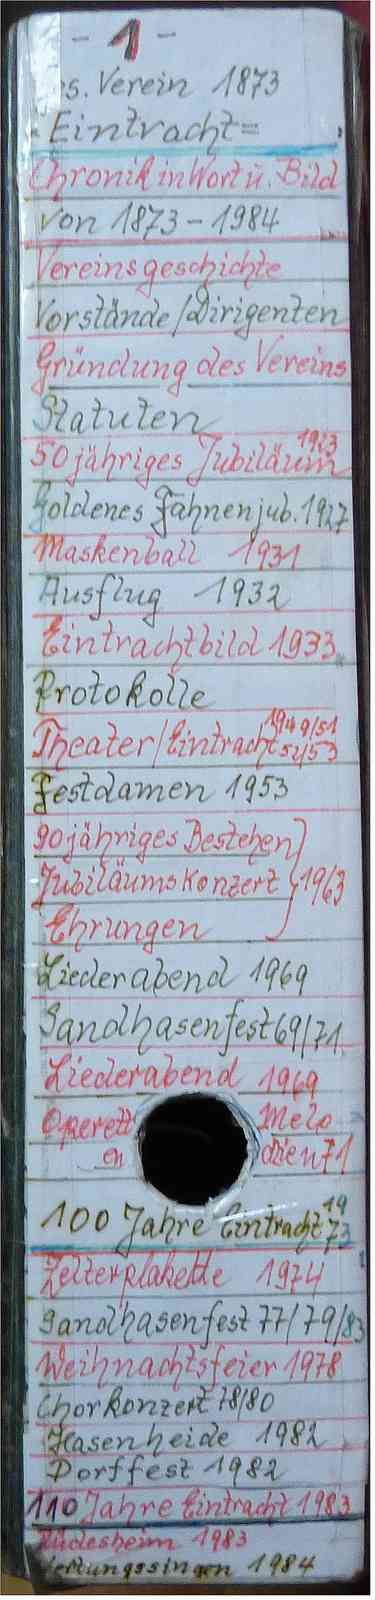 - 1 -
es. Verein 1873
"Eintracht"
Chronik in Wort u. Bild
von 1873 - 1984
Vereinsgeschichte
Vorstände/Dirigenten
Gründung des Vereins
Statuten
50 jähriges Jubiläum 1923
Goldenes Fahnenjub. 1927
Maskenball 1931
Ausflug 1932
Eintrachtbild 1933
Protokolle
Theater/Eintracht 1949/51 52/53
Festdamen 1953
90 jähriges Bestehen
Jubiläumskonzert } 1963
Ehrungen
Liederabend 1969
Sandhasenfest 69/71
Liederabend 1969
Operett Melo
en dien 71
100 Jahre Eintracht 1973
Zelterplakette 1974
Sandhasenfest 77/79/83
Weihnachtsfeier 1978
Chorkonzert 78/80
Hasenheide 1982
Dorffest 1982
110 Jahre Eintracht 1983
Rüdesheim 1983
ertungssingen 1984